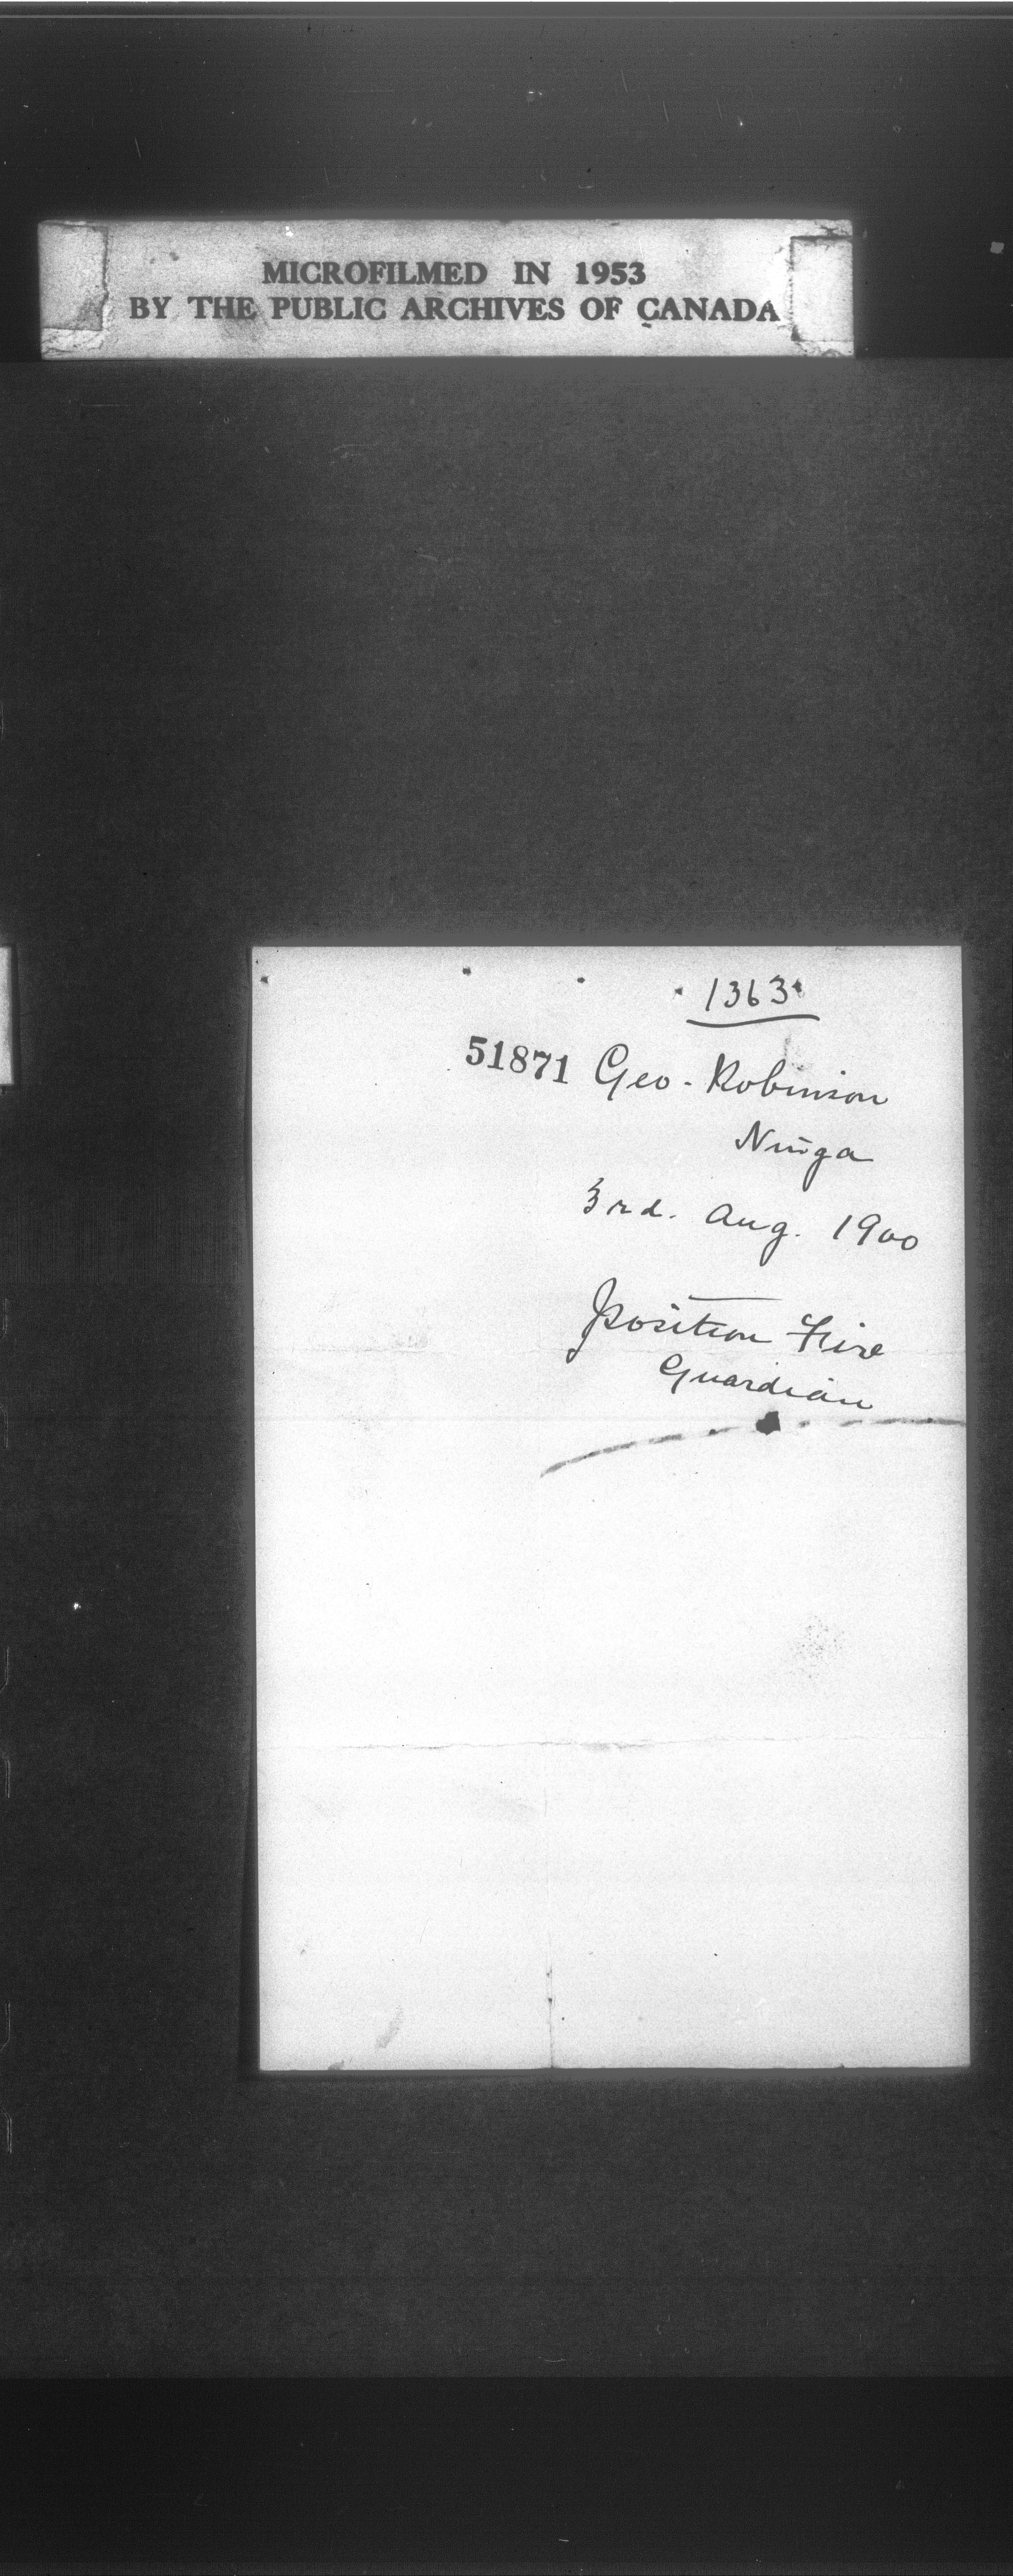 MICROFILMED IN 1953
BY THE PUBLIC ARCHIVES OF CANADA
1363
51871 Geo. Robinson
Ninga
3rd. Aug. 1900
Position Fire
Guardian